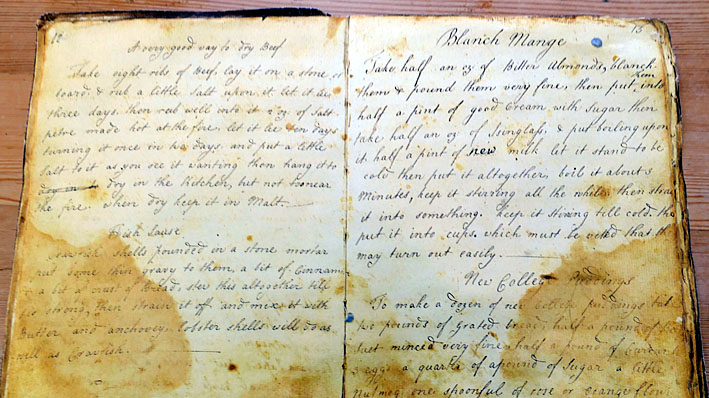 12
A very good way to dry Beef
Take eight ribs of Beef, lay it on a stone or
board & rub a little Salt upon it let it lie
three days, then rub well into it oz of Salt
petre made hot at the fire, let it lie ten days
turning it once in two days, and put a little
Salt to it as you see it wanting then hang it to
dry in the Kitchen, but not too near
the fire. when dry keep it in Malt.
Fish Sause
shells pounded in a stone mortar
put some thin gravy to them, a bit of Cinnam
a bit of crust of Bread, stew this altogether till
tis strong, then strain it off and mix it with
Butter and anchovey, Lobster shells will do as
well as Crayfish.
13
Blanch Mange
Take half an oz of Bitter Almonds, blanch
them & pound them very fine, then put them into
half a pint of good Cream with Sugar then
take half an oz of Isinglass, & put boiling upon
it half a pint of new milk let it stand to be
cold then put it altogether, boil it about 5
Minutes, keep it stirring all the while, then strain
it into something. keep it stirring till cold. then
put it into cups, which must be wetted that th
may turn out easily.
New College Puddings
To make a dozen of new College puddings tak
two pounds of grated bread, half a pound of
Suet minced very fine, half a pound of Currants
eggs a quarter of a pound of Sugar a little
Nutmeg one spoonful of rose or orange flou